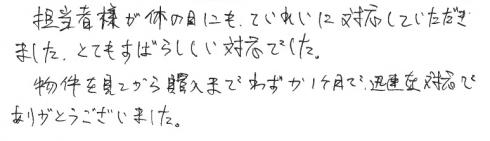 担当者様が休の日にも、ていねいに対応していただき
ました。とてもすばらしい対応でした。
物件を見てから購入までわずか1ヶ月で、迅速な対応で
ありがとうございました。